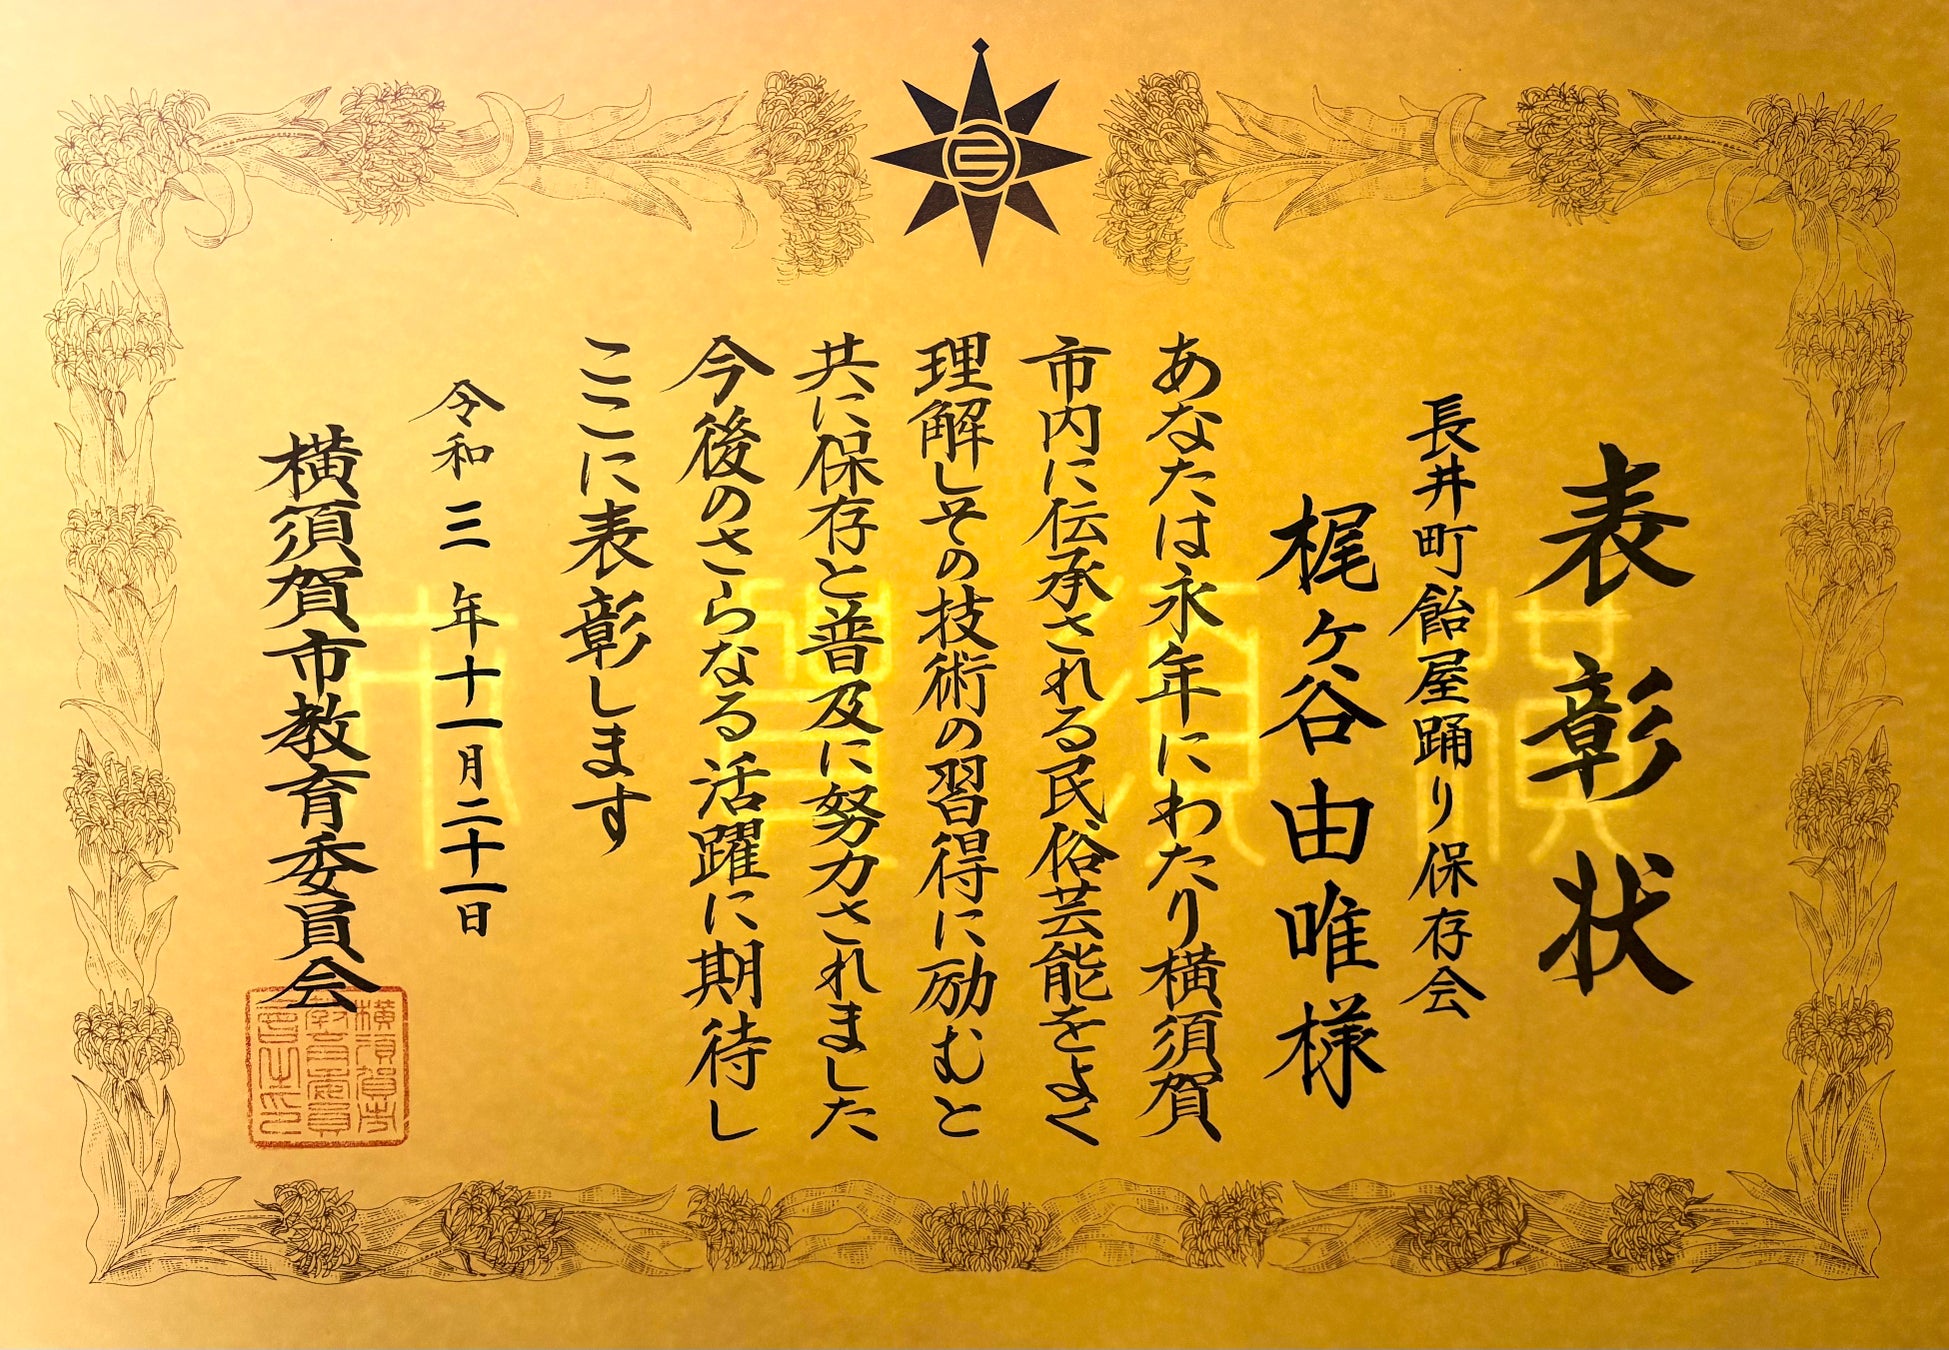 表彰状
長井町飴屋踊り保存会
梶ヶ谷由唯様
あなたは永年にわたり横須賀
市内に伝承される民俗芸能をよく
理解しその技術の習得に励むと
共に保存と普及に努力されました
今後のさらなる活躍に期待し
ここに表彰します
令和三年十一月二十一日
横須賀市教育委員会
横須賀市
教育委員
会之印
横須賀市